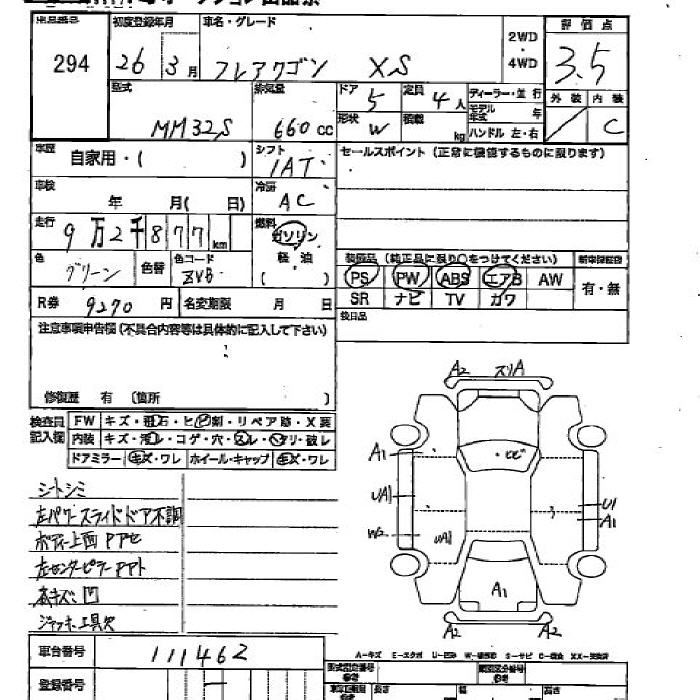 出品番号
294
初度登録年月
26 3月
車名・グレード
フレアワゴン XS
2WD
・
4WD
評価点
3.5
外装 内装
C
型式
MM32S
排気量
660cc
ドア
5
定員
4人
形状
W
積載
kg
ディーラー・並行
モデル年式 年
ハンドル 左・右
車歴
自家用・( )
シフト
IAT
セールスポイント (正常に機能するものに限ります)
車検
年 月( 日)
冷房
AC
走行
9万2千877km
燃料
ガソリン
軽油
( )
色
グリーン
色替
色コード
ZVB
装備品 (純正品に限り○をつけてください)
PS PW ABS エアB AW
SR ナビ TV カワ
新車保証書
有・無
R券
9270円
名変期限 月 日
後日品
注意事項申告欄 (不具合内容等は具体的に記入して下さい)
修復歴 有 (箇所 )
検査員記入欄
FW キズ・飛石・ヒビ割・リペア跡・X要
内装 キズ・汚レ・コゲ・穴・スレ・ヘタリ・破レ
ドアミラー キズ・ワレ ホイール・キャップ キズ・ワレ
シートシミ
左パワースライドドア不調
ボディ上面PPセ
左センターピラーPPト
小キズ凹
ジャッキ工具欠
A2 スリA
A1
ヒビ
UA1
U1
A1
W2
UA1
A1
A2 A2
車台番号
111462
登録番号
A-キズ
車台
長さ 幅 高さ